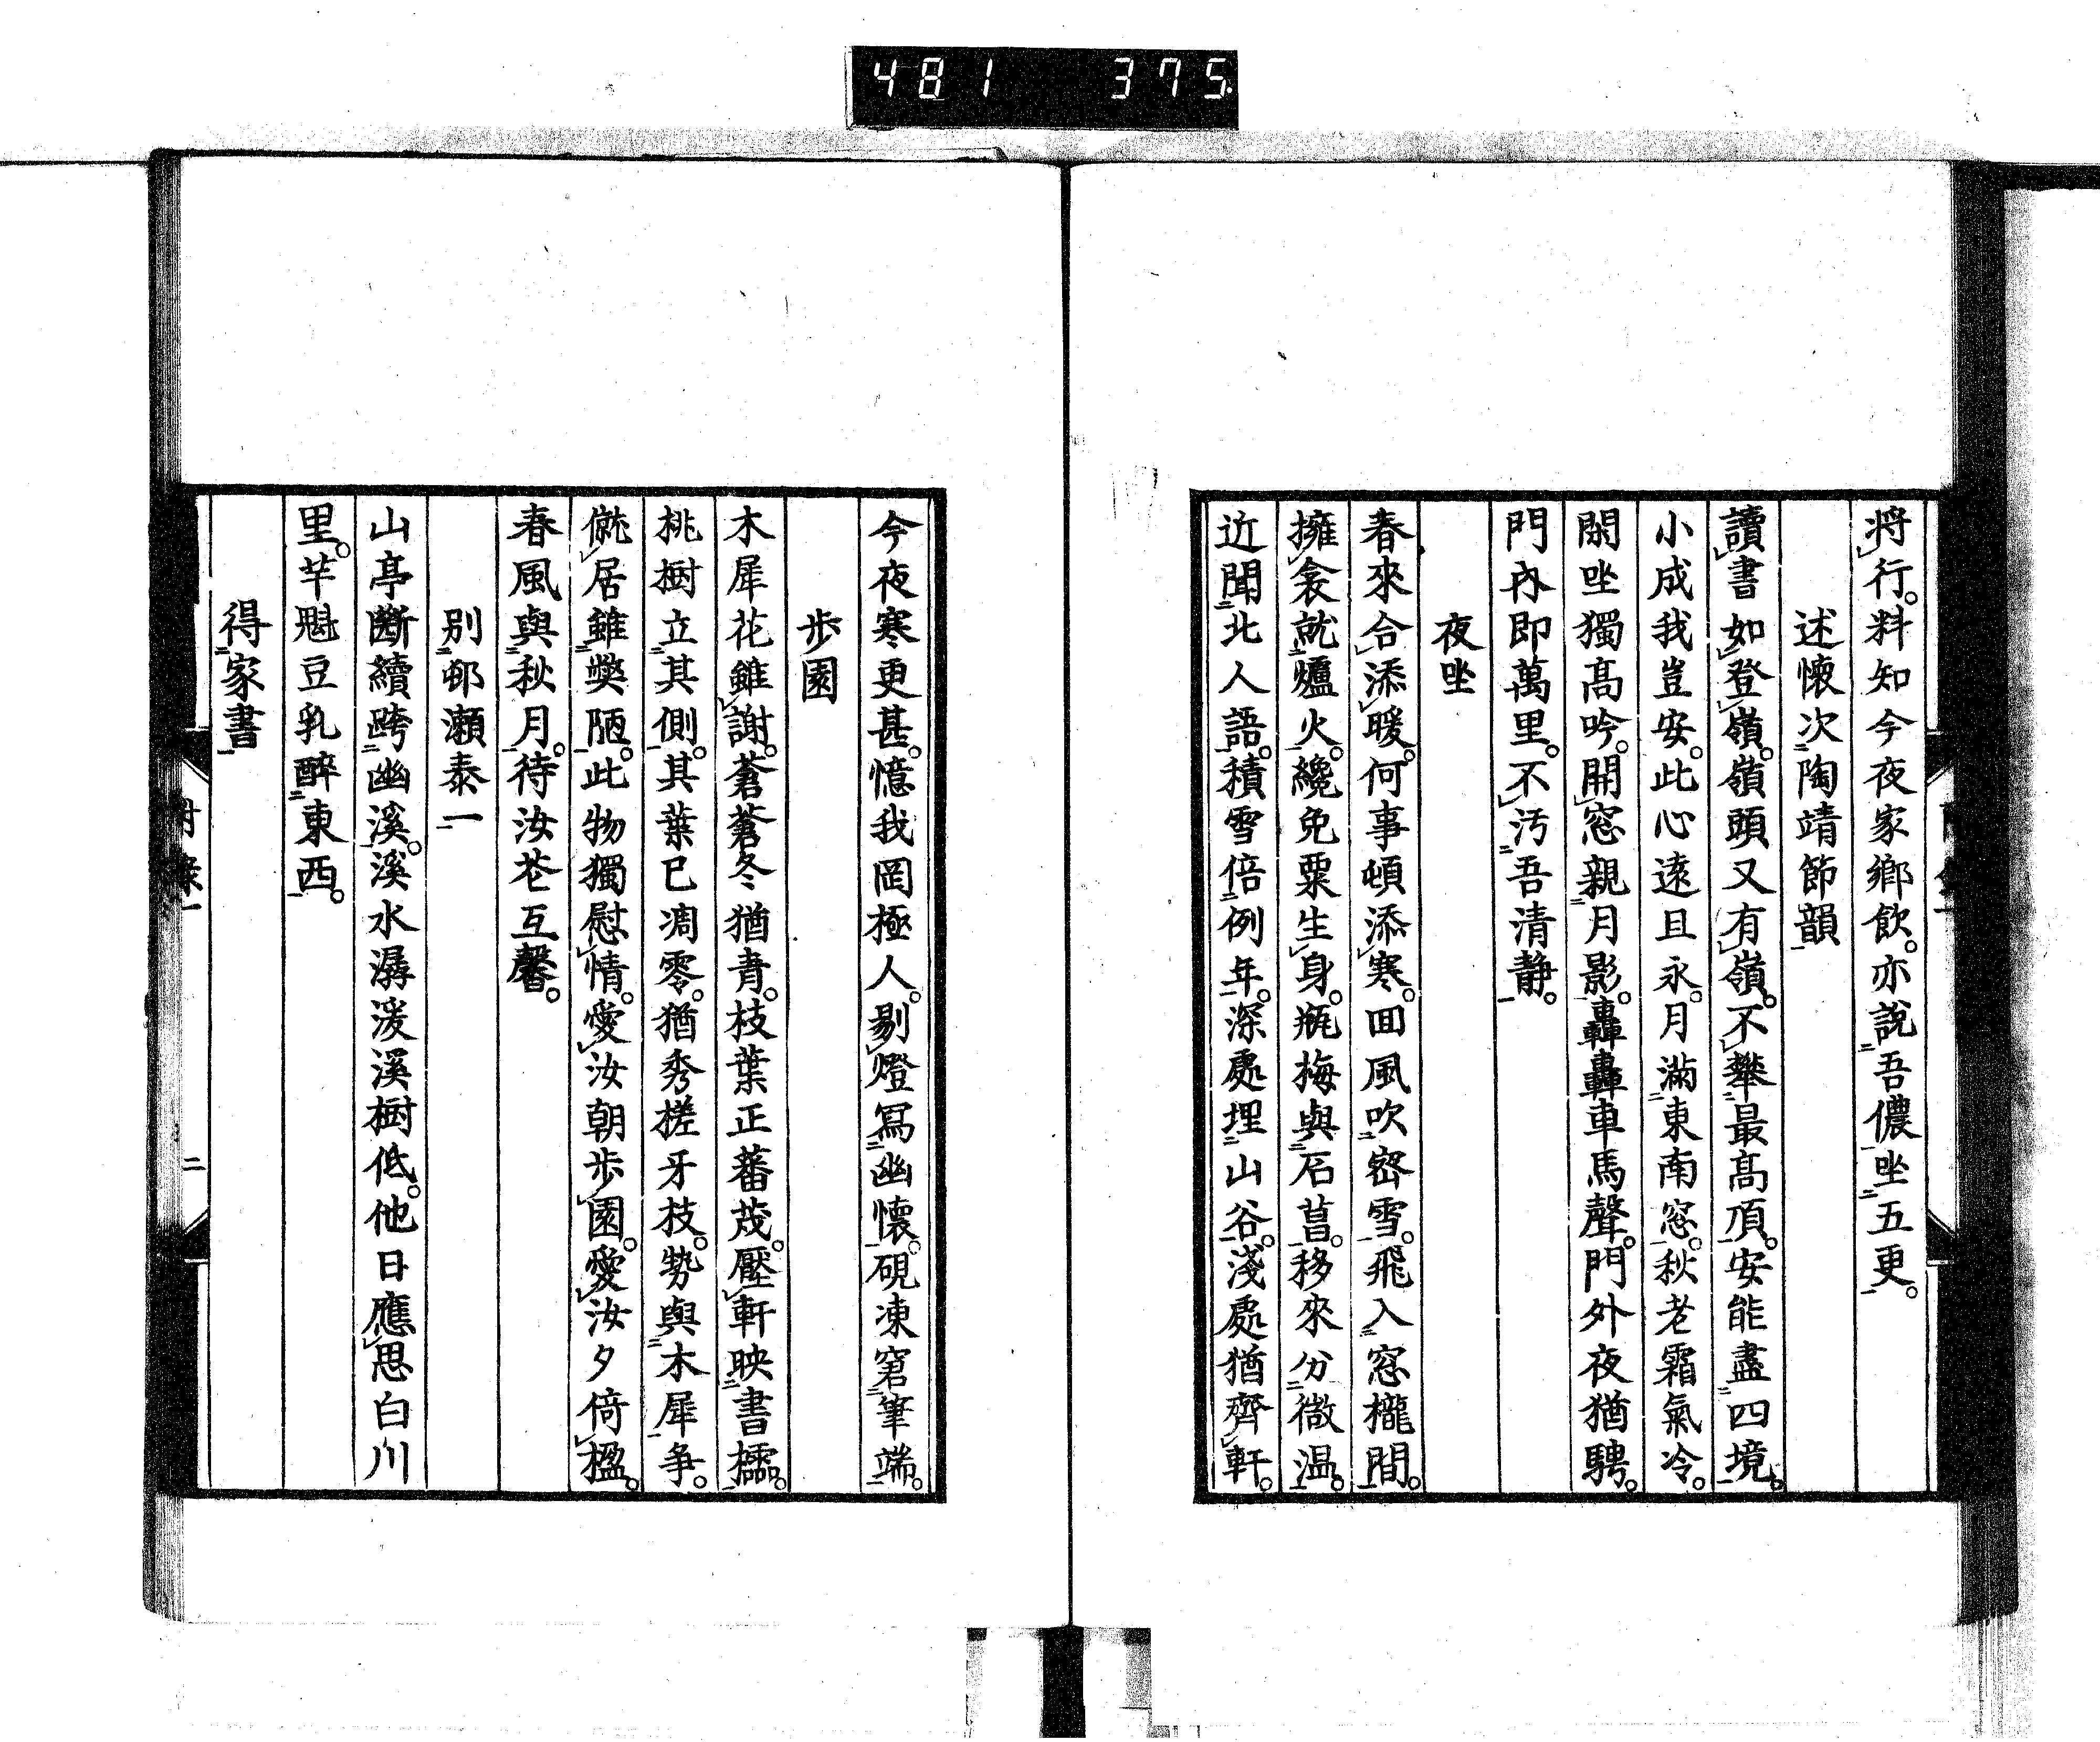 481 375
將行。料知今夜家鄉飮。亦說吾儂坐五更。
述懷次陶靖節韻
讀書如登嶺。嶺頭又有嶺。不攀最高頂。安能盡四境。
小成我豈安。此心遠且永。月滿東南窓。秋老霜氣冷。
閑坐獨高吟。開窓親月影。轟轟車馬聲。門外夜猶騁。
門內卽萬里。不汚吾淸靜。
夜坐
春來合添暖。何事頓添寒。囬風吹密雪。飛入窓櫳間。
擁衾就爐火。纔免粟生身。瓶梅與石菖。移來分微溫。
近聞北人語。積雪倍例年。深處埋山谷。淺處猶齊軒。
今夜寒更甚。憶我罔極人。剔燈寫幽懷。硯凍窘筆端。
步園
木犀花雖謝。蒼蒼冬猶靑。枝葉正蕃茂。壓軒映書櫺。
桃樹立其側。其葉已凋零。猶秀槎牙枝。勢與木犀爭。
僦居雖獘陋。此物獨慰情。愛汝朝步園。愛汝夕倚楹。
春風與秋月。待汝花互馨。
別邨瀬泰一
山亭斷續跨幽溪。溪水潺湲溪樹低。他日應思白川
里。芋魁豆乳醉東西。
得家書
附錄一
二